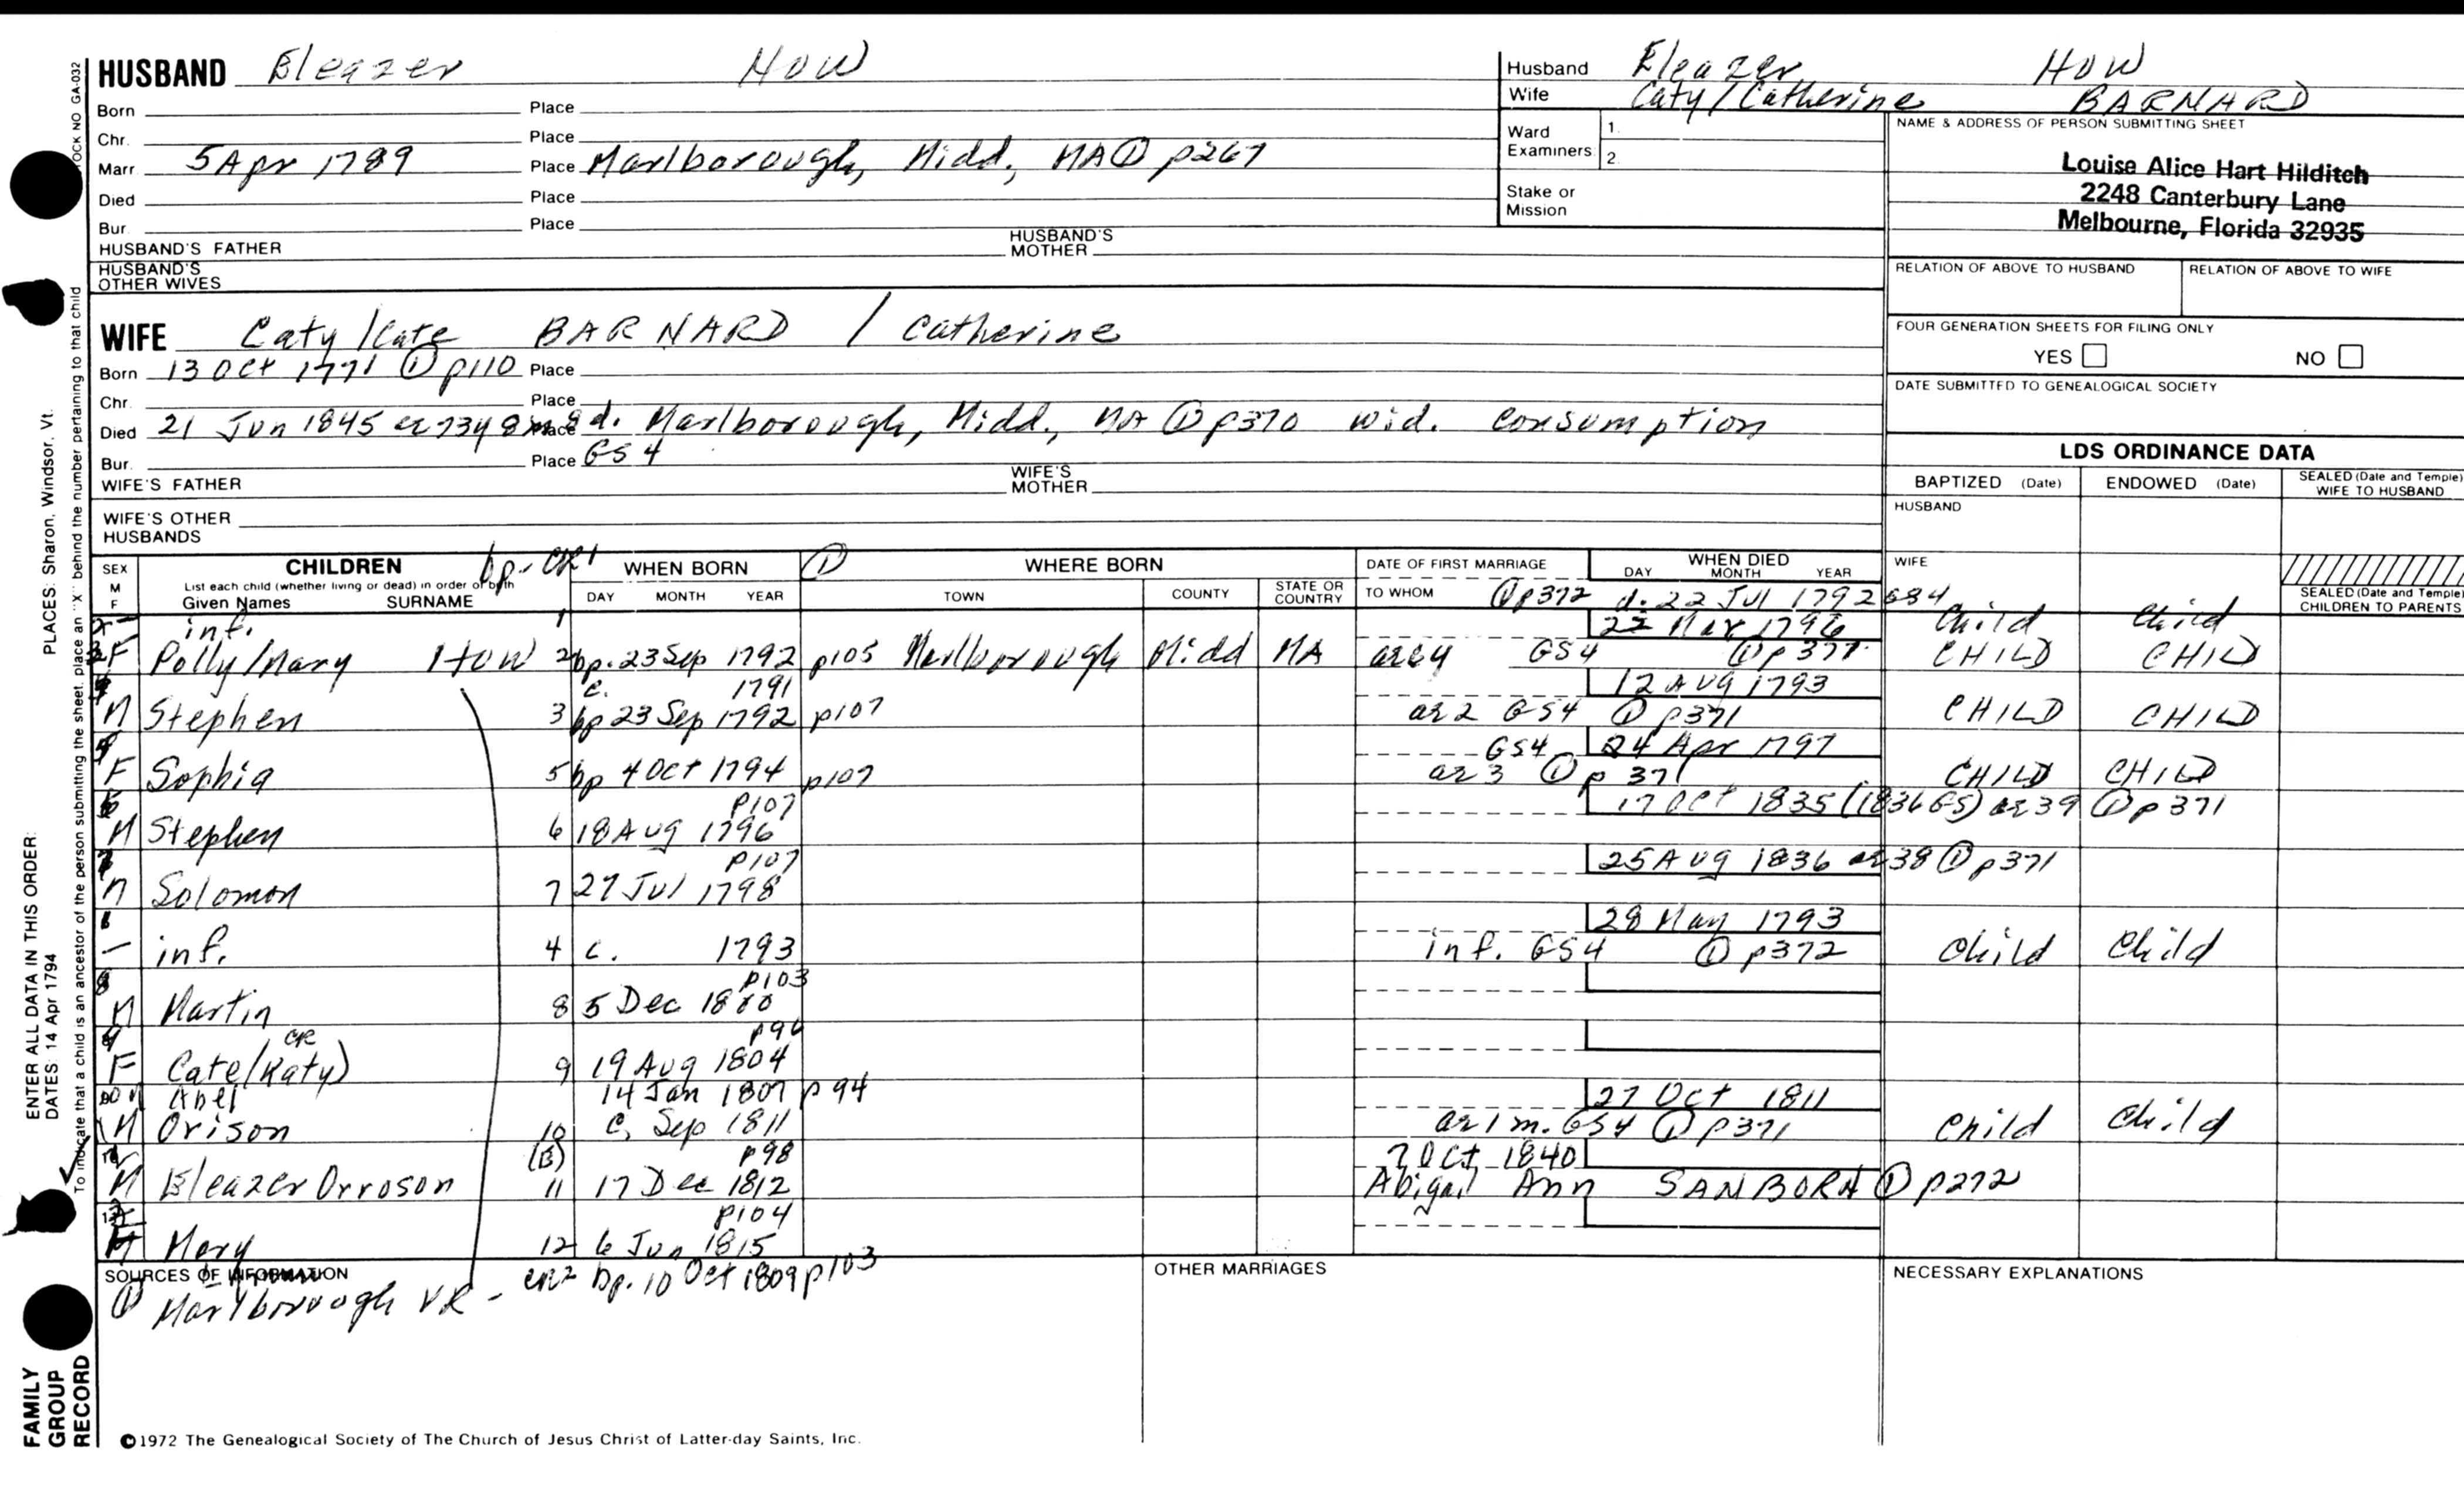 HUSBAND Eleazer HOW
Born Place
Chr. Place
Marr 5 Apr 1789 Place Marlborough, Midd, MA ① p267
Died Place
Bur. Place
HUSBAND'S FATHER HUSBAND'S MOTHER
HUSBAND'S OTHER WIVES
Husband Eleazer HOW
Wife Caty/Catherine BARNARD
Ward Examiners 1. 2.
Stake or Mission
NAME & ADDRESS OF PERSON SUBMITTING SHEET
Louise Alice Hart Hilditch
2248 Canterbury Lane
Melbourne, Florida 32935
RELATION OF ABOVE TO HUSBAND RELATION OF ABOVE TO WIFE
FOUR GENERATION SHEETS FOR FILING ONLY
YES NO
DATE SUBMITTED TO GENEALOGICAL SOCIETY
WIFE Caty/Cate BARNARD / Catherine
Born 13 Oct 1771 ① p110 Place
Chr. Place
Died 21 Jun 1845 ae 73y 8m 8d. Place Marlborough, Midd., MA ① p370 wid. consumption
Bur. Place GS4
WIFE'S FATHER WIFE'S MOTHER
WIFE'S OTHER HUSBANDS
LDS ORDINANCE DATA
BAPTIZED (Date) ENDOWED (Date) SEALED (Date and Temple) WIFE TO HUSBAND
HUSBAND
WIFE
SEALED (Date and Temple) CHILDREN TO PARENTS
SEX M F
CHILDREN bp-CR1
List each child (whether living or dead) in order of birth
Given Names SURNAME
WHEN BORN
DAY MONTH YEAR
① WHERE BORN
TOWN COUNTY STATE OR COUNTRY
DATE OF FIRST MARRIAGE
TO WHOM
WHEN DIED
DAY MONTH YEAR
inf. 1 ① p372 d. 22 Jul 1792 GS4 Child Child
F Polly/Mary HOW 2 bp. 23 Sep 1792 p105 Marlborough Midd MA ae 4 GS4 22 Mar 1796 ① p371 CHILD CHILD
M Stephen 3 c. 1791 bp 23 Sep 1792 p107 ae 2 GS4 12 Aug 1793 ① p371 CHILD CHILD
F Sophia 5 bp 4 Oct 1794 p107 ae 3 GS4 24 Apr 1797 ① p 371 CHILD CHILD
M Stephen 6 18 Aug 1796 p107 17 Oct 1835 (1836 GS) ae 39 ① p371
M Solomon 7 27 Jul 1798 p107 25 Aug 1836 ae 38 ① p371
- inf. 4 c. 1793 inf. GS4 28 May 1793 ① p372 Child Child
M Martin 8 5 Dec 1800 p103
F Cate/Katy) CR 9 19 Aug 1804 p94
Abel 14 Jan 1807 p94
M Orison 10 c. Sep 1811 ae 1 m. GS4 27 Oct 1811 ① p371 Child Child
M Eleazer Orroson (B) 11 17 Dec 1812 p98 7 Oct 1840 Abigail Ann SANBORN ① p272
Mary 12 6 Jun 1815 p104
CR2 bp. 10 Oct 1809 p103
SOURCES OF INFORMATION
① Marlborough VR -
OTHER MARRIAGES
NECESSARY EXPLANATIONS
©1972 The Genealogical Society of The Church of Jesus Christ of Latter-day Saints, Inc.
FAMILY GROUP RECORD
ENTER ALL DATA IN THIS ORDER:
DATES: 14 Apr 1794 PLACES: Sharon, Windsor, Vt.
To indicate that a child is an ancestor of the person submitting the sheet, place an "X" behind the number pertaining to that child
STOCK NO GA-032